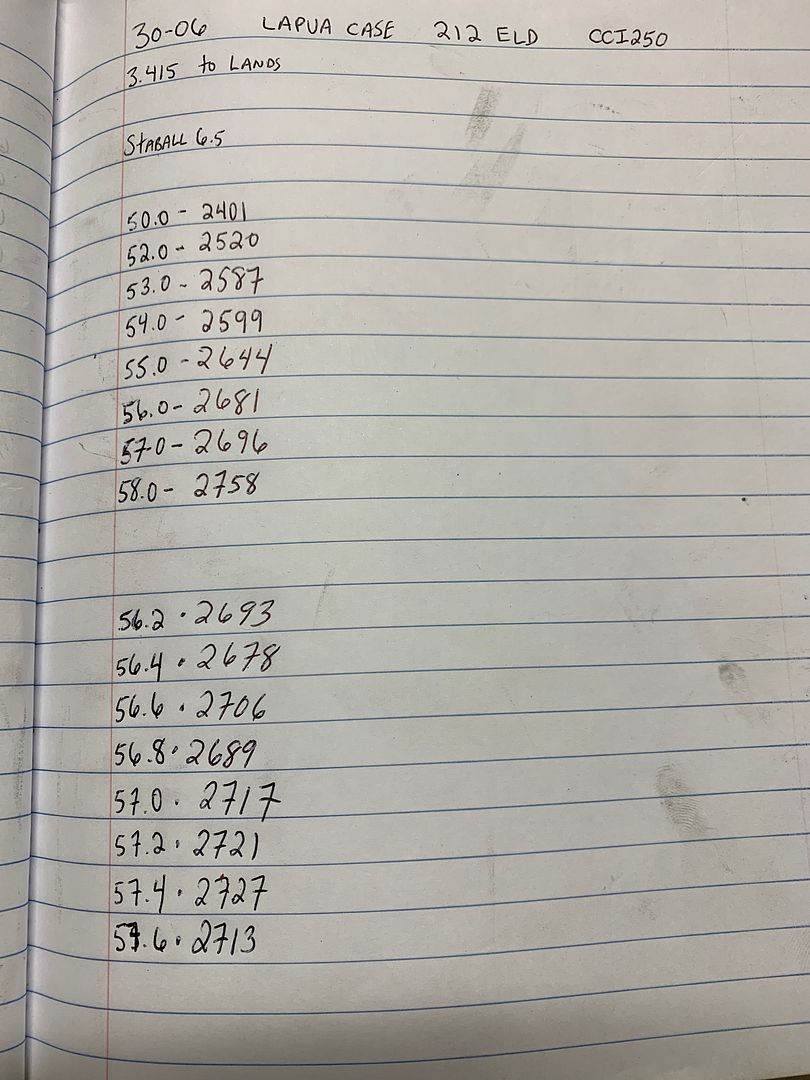 30-06 LAPUA CASE 212 ELD CCI250
3.415 to LANDS
StABALL 6.5
50.0 - 2401
52.0 - 2520
53.0 - 2587
54.0 - 2599
55.0 - 2644
56.0 - 2681
57.0 - 2696
58.0 - 2758
56.2 · 2693
56.4 · 2678
56.6 · 2706
56.8 · 2689
57.0 · 2717
57.2 · 2721
57.4 · 2727
57.6 · 2713